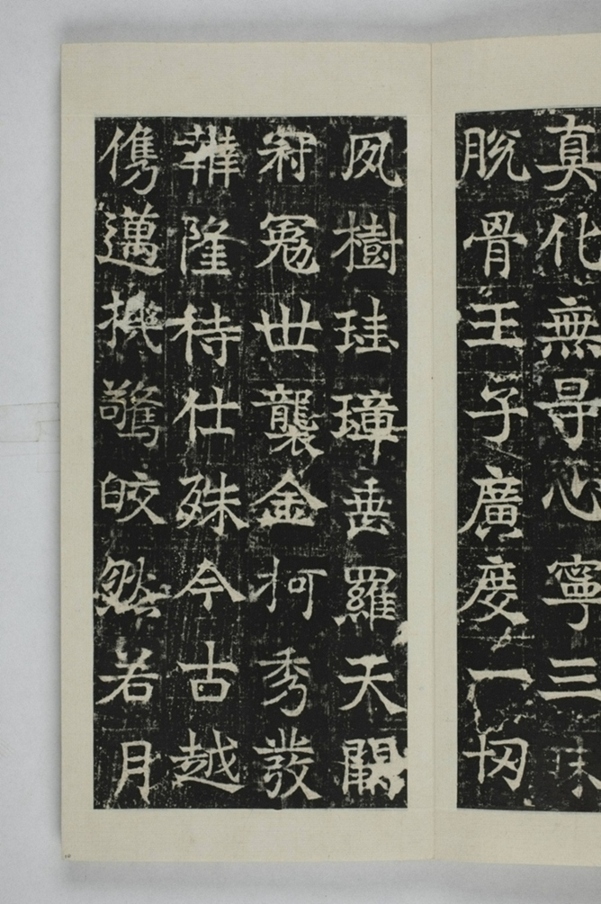 真化無㝵心寧三昧
脫骨王子廣度一切
夙樹珪璋垂羅天闕
冠冕世襲金柯秀發
韡隆待仕殊今古越
儁邁機驚皎然若月